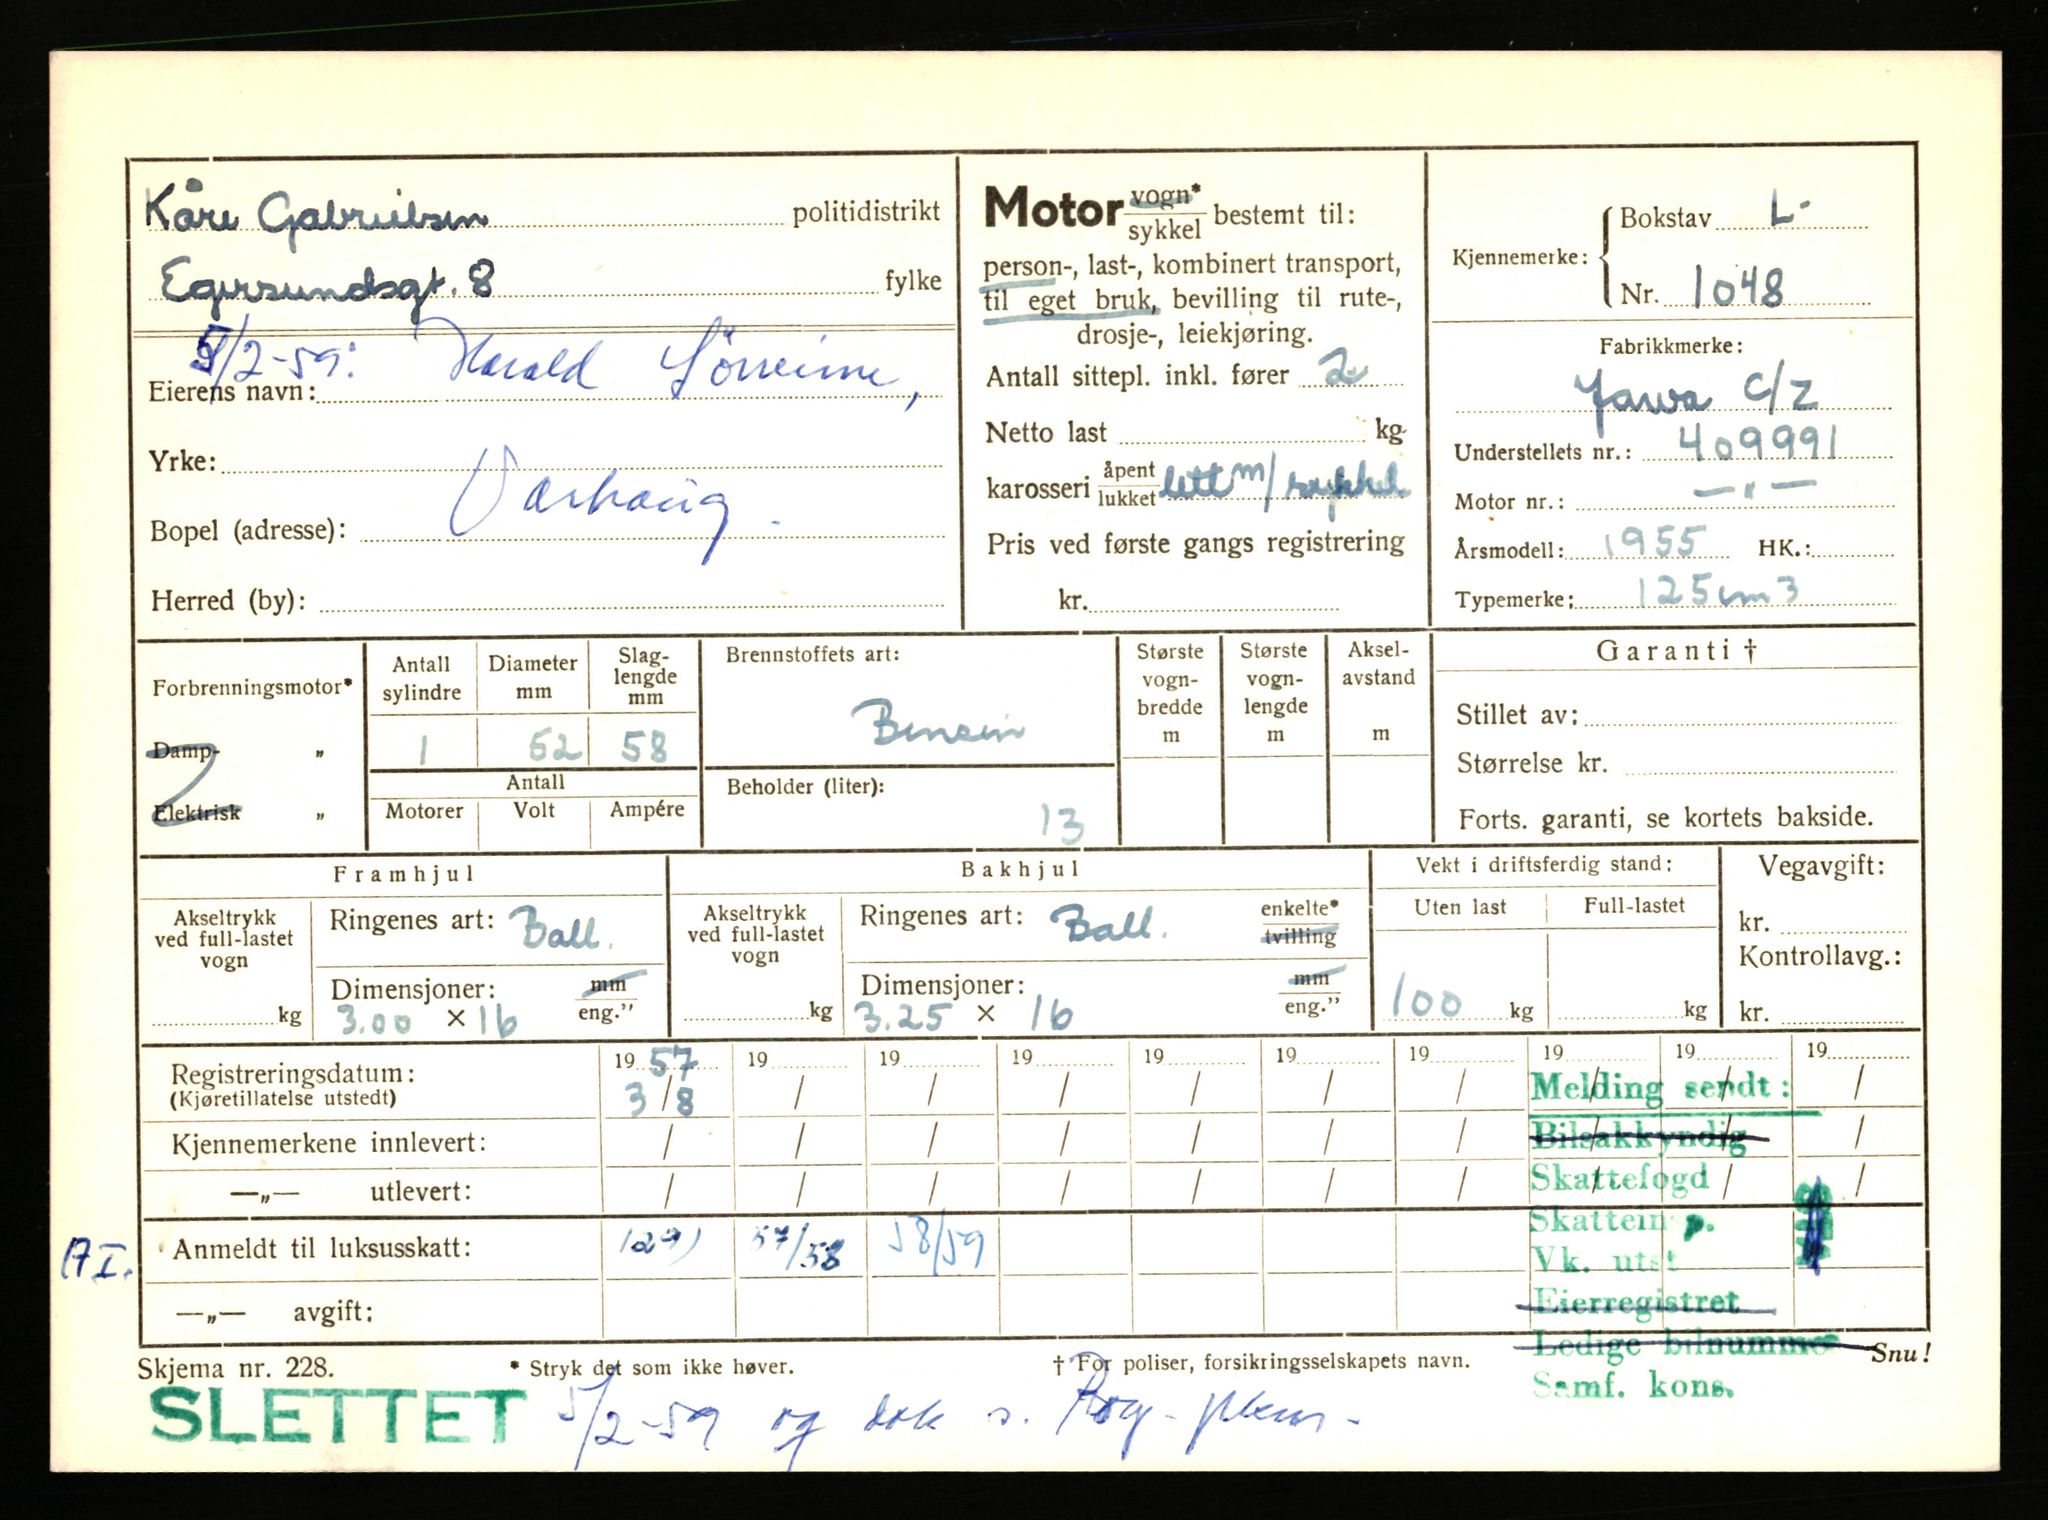 Kåre Gabrielsen politidistrikt
Egersundsgt. 8 fylke
5/2-59: Harald
Eierens navn:
Yrke:
Varhaug.
Bopel (adresse):
Herred (by):
Motor vogn* / sykkel bestemt til:
person-, last-, kombinert transport,
til eget bruk, bevilling til rute-,
drosje-, leiekjøring.
Antall sittepl. inkl. fører 2
Netto last kg
karosseri åpent / lukket lett m/sykkel
Pris ved første gangs registrering
kr.
Kjennemerke: Bokstav L-
Nr. 1048
Fabrikkmerke:
Jawa C/Z
Understellets nr.: 409991
Motor nr.: — „ —
Årsmodell: 1955 HK.:
Typemerke: 125 cm3
Forbrenningsmotor*
Damp- „
Elektrisk „
Antall sylindre Diameter mm Slag-lengde mm
1 52 58
Antall
Motorer Volt Ampére
Brennstoffets art:
Bensin
Beholder (liter):
13
Største vogn-bredde m
Største vogn-lengde m
Aksel-avstand m
Garanti †
Stillet av:
Størrelse kr.
Forts. garanti, se kortets bakside.
Framhjul
Akseltrykk ved full-lastet vogn
kg
Ringenes art: Ball.
Dimensjoner: mm / eng.”
3.00 × 16
Bakhjul
Akseltrykk ved full-lastet vogn
kg
Ringenes art: Ball. enkelte* / tvilling
Dimensjoner: mm / eng.”
3.25 × 16
Vekt i driftsferdig stand:
Uten last Full-lastet
100 kg kg
Vegavgift:
kr.
Kontrollavg.:
kr.
Registreringsdatum: 19 57 19 19 19 19 19 19 19 19 19
(Kjøretillatelse utstedt) 3/8 / / / / / / / / /
Kjennemerkene innlevert: / / / / / / / / / /
—„— utlevert: / / / / / / / / / /
A I. Anmeldt til luksusskatt: 57/58 58/59
—„— avgift:
Melding sendt:
Bilsakkyndig
Skattefogd
Skatteinsp.
Vk. utst
Eierregistret
Ledige bilnummer
Samf. kons.
Skjema nr. 228. * Stryk det som ikke høver. † For poliser, forsikringsselskapets navn. Snu!
SLETTET 5/2-59 og dok s.